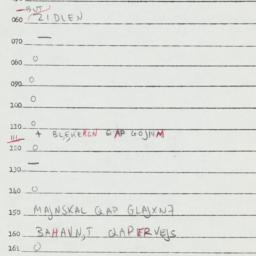 060 ZIDLEN
070 —
080 0
090 0
100 0
110 0
111 + BLEKERCN QAP GOJIVM
120 0
130 —
140 0
150 MAJNSKAL QAP GLAJXN7
160 BAHAVN,T QAPERVEJS
161 0